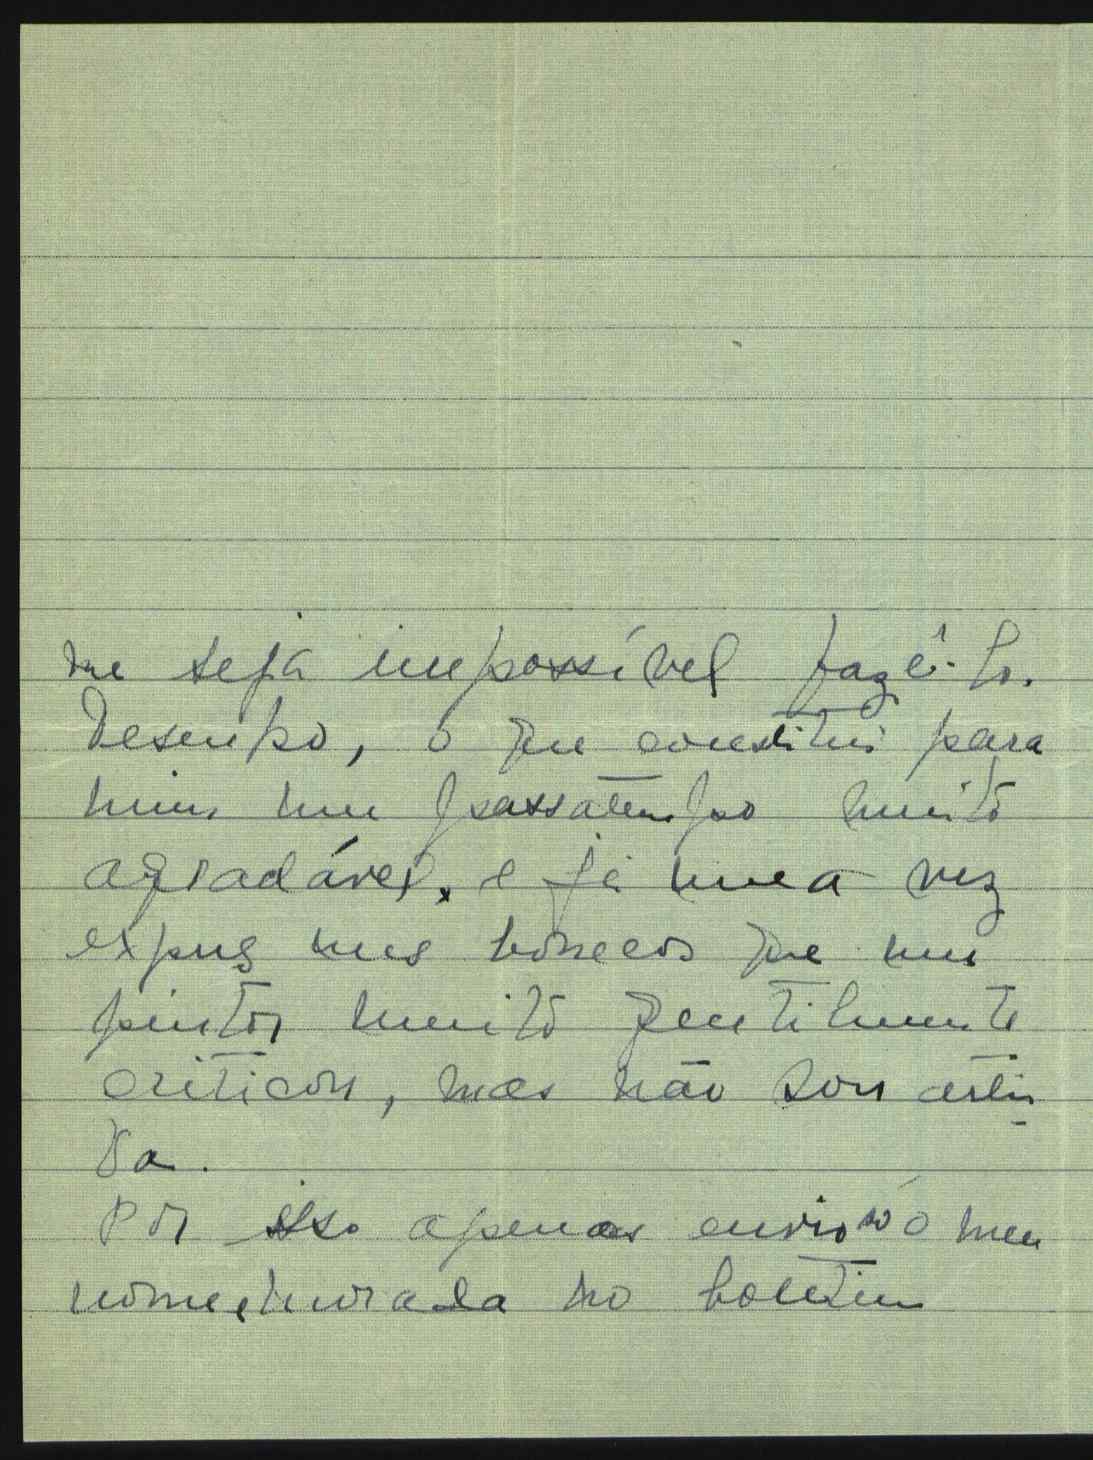 me seja impossível fazê-lo.
Desenho, o que constitui para
mim um passatempo muito
agradável, e já uma vez
expus uns bonecos que um
pintor muito gentilmente
criticou, mas não sou artis
ta.
Por isso apenas envio só o meu
nome e morada no boletim